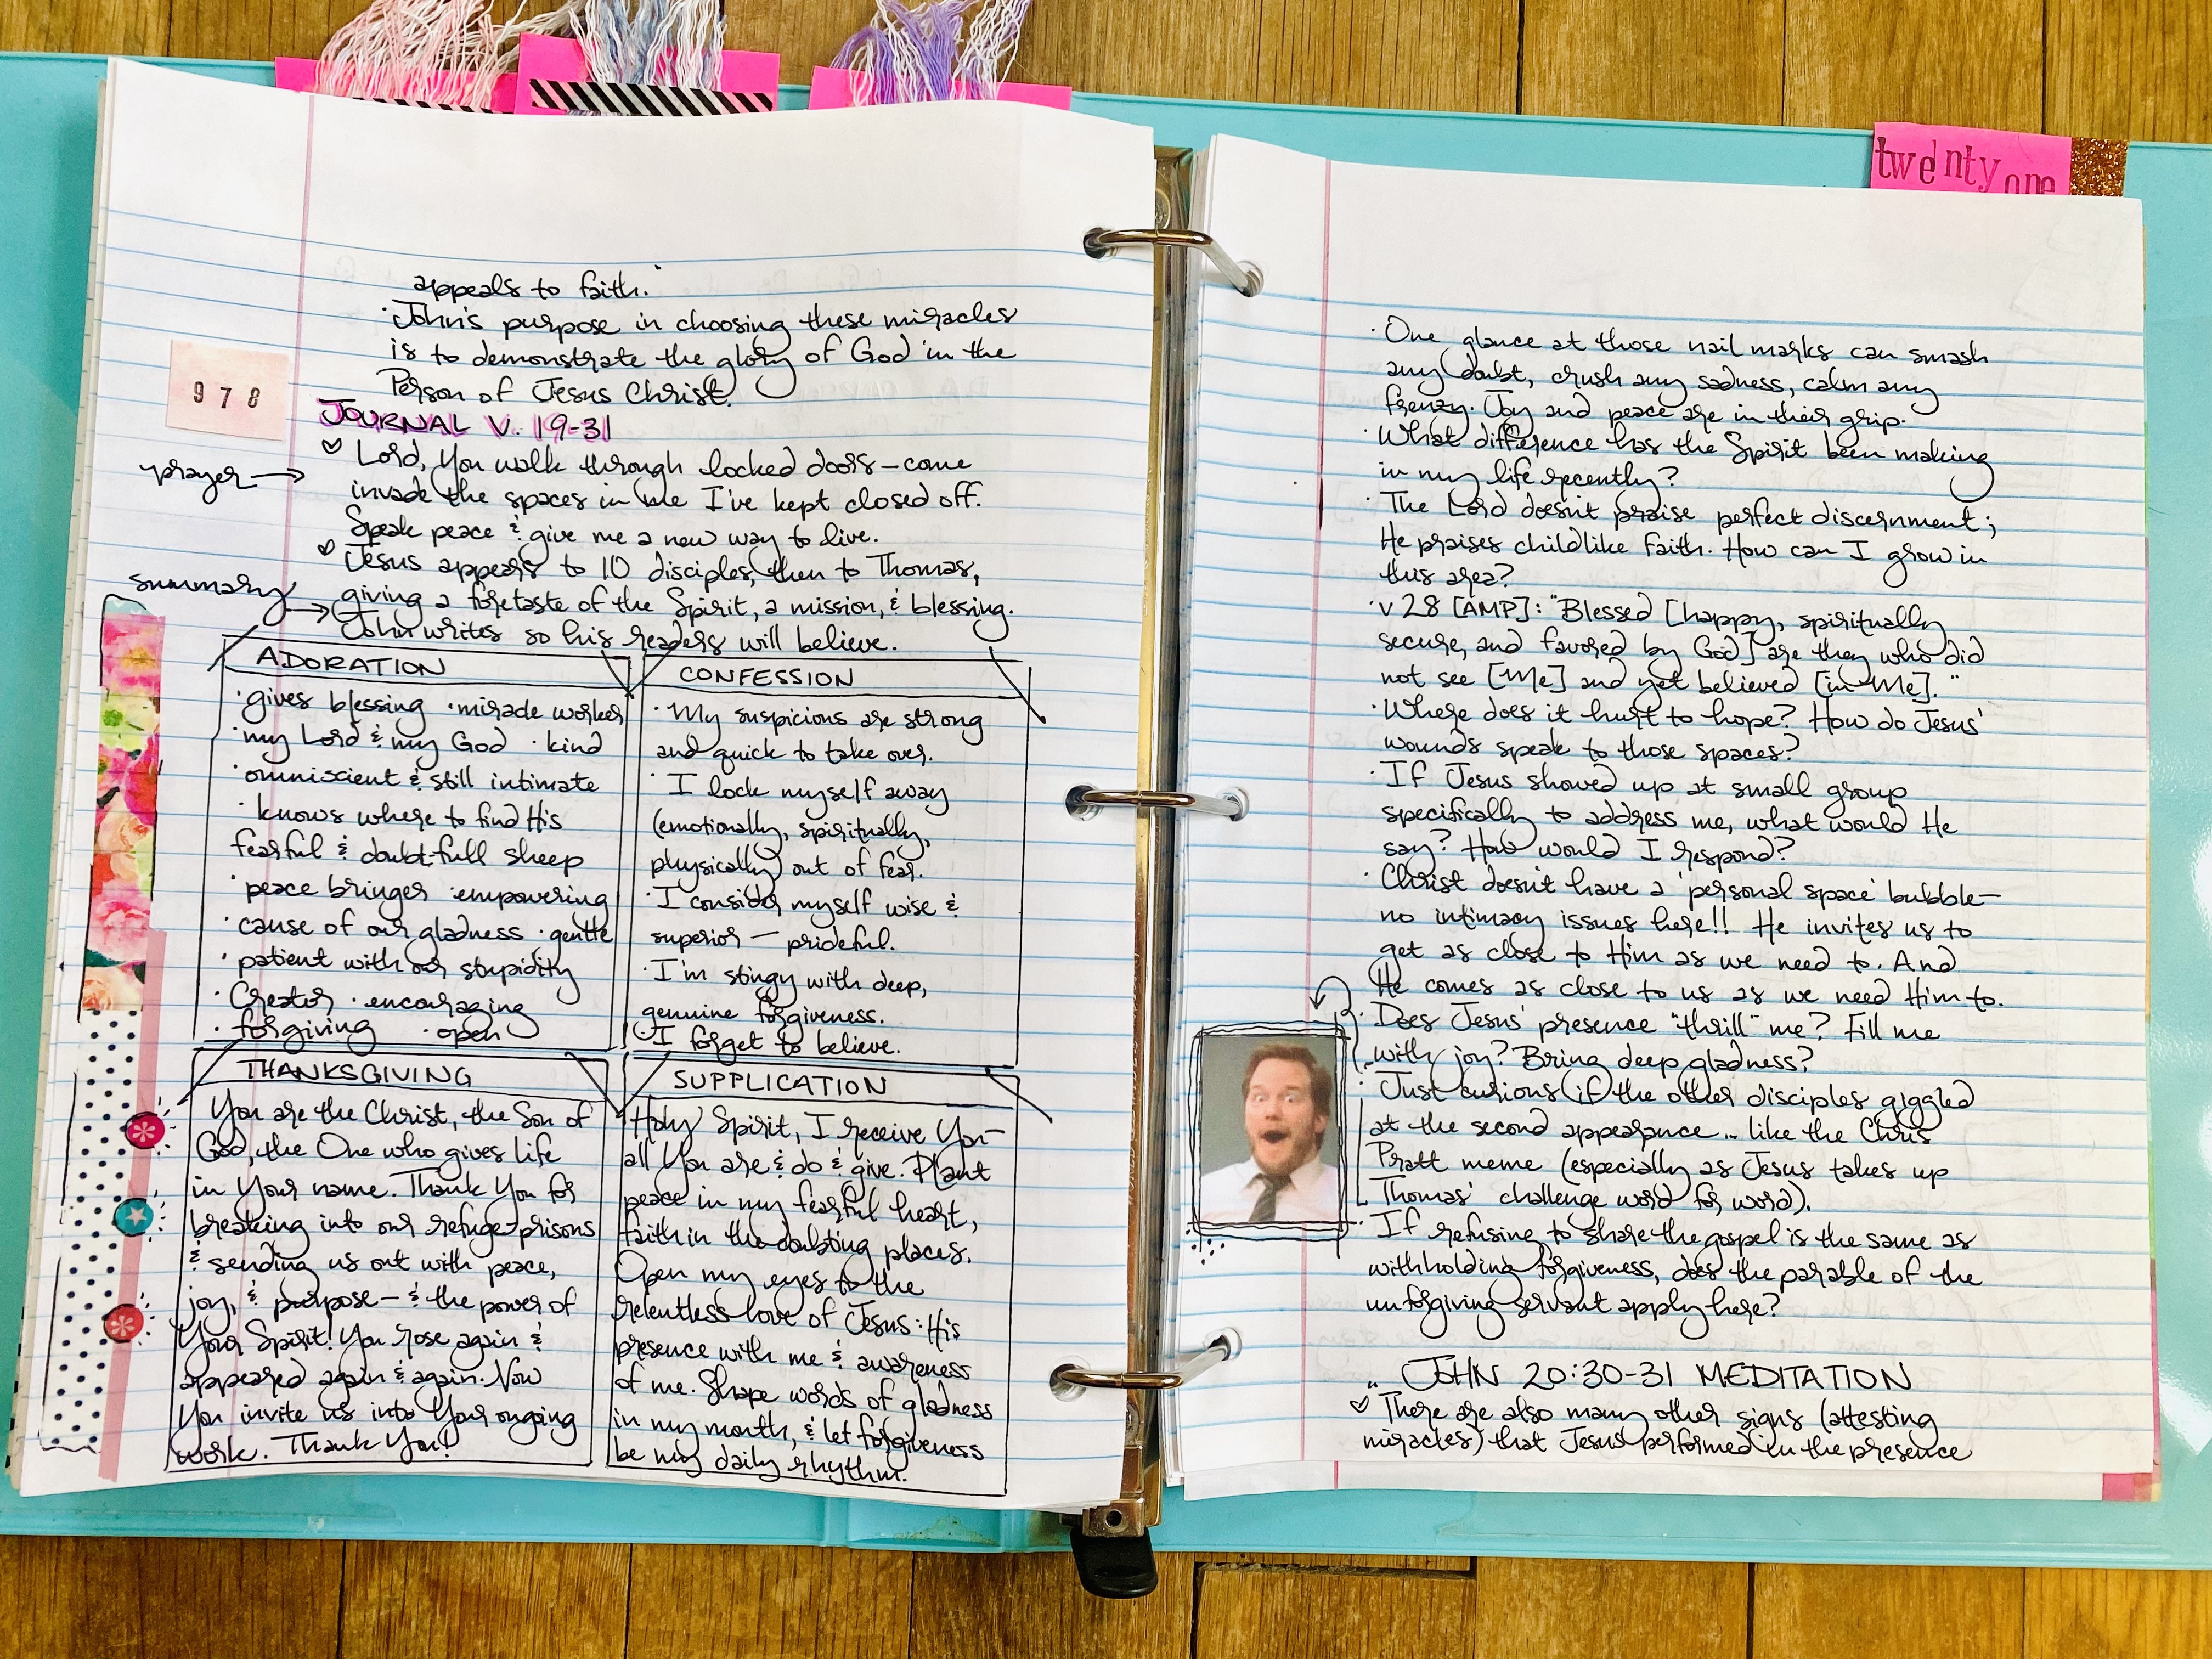 twenty one
appeals to faith.
· John's purpose in choosing these miracles
is to demonstrate the glory of God in the
Person of Jesus Christ.
978
JOURNAL V. 19-31
prayer →
♡ Lord, You walk through locked doors – come
invade the spaces in me I've kept closed off.
Speak peace & give me a new way to live.
summary →
♡ Jesus appears to 10 disciples, then to Thomas,
giving a foretaste of the Spirit, a mission, & blessing.
John writes so his readers will believe.
ADORATION
· gives blessing · miracle worker
· my Lord & my God · kind
· omniscient & still intimate
· knows where to find His
fearful & doubt-full sheep
· peace bringer · empowering
· cause of our gladness · gentle
· patient with our stupidity
· Creator · encouraging
· forgiving · open
CONFESSION
· My suspicions are strong
and quick to take over.
· I lock myself away
(emotionally, spiritually,
physically) out of fear.
· I consider myself wise &
superior – prideful.
· I'm stingy with deep,
genuine forgiveness.
· I forget to believe.
THANKSGIVING
You are the Christ, the Son of
God, the One who gives life
in Your name. Thank You for
breaking into our refuge-prisons
& sending us out with peace,
joy, & purpose – & the power of
Your Spirit! You rose again &
appeared again & again. Now
You invite us into Your ongoing
work. Thank You!
SUPPLICATION
Holy Spirit, I receive You –
all You are & do & give. Plant
peace in my fearful heart,
faith in the doubting places.
Open my eyes to the
relentless love of Jesus: His
presence with me & awareness
of me. Shape words of gladness
in my mouth, & let forgiveness
be my daily rhythm.
· One glance at those nail marks can smash
any doubt, crush any sadness, calm any
frenzy. Joy and peace are in their grip.
· What difference has the Spirit been making
in my life recently?
· The Lord doesn't praise perfect discernment;
He praises childlike faith. How can I grow in
this area?
· v 28 [AMP]: "Blessed [happy, spiritually
secure, and favored by God] are they who did
not see [Me] and yet believed [in Me]."
· Where does it hurt to hope? How do Jesus'
wounds speak to those spaces?
· If Jesus showed up at small group
specifically to address me, what would He
say? How would I respond?
· Christ doesn't have a 'personal space' bubble –
no intimacy issues here!! He invites us to
get as close to Him as we need to. And
He comes as close to us as we need Him to.
· Does Jesus' presence "thrill" me? Fill me
with joy? Bring deep gladness?
· Just curious if the other disciples giggled
at the second appearance... like the Chris
Pratt meme (especially as Jesus takes up
Thomas' challenge word for word).
· If refusing to share the gospel is the same as
withholding forgiveness, does the parable of the
unforgiving servant apply here?
JOHN 20:30-31 MEDITATION
♡ There are also many other signs (attesting
miracles) that Jesus performed in the presence